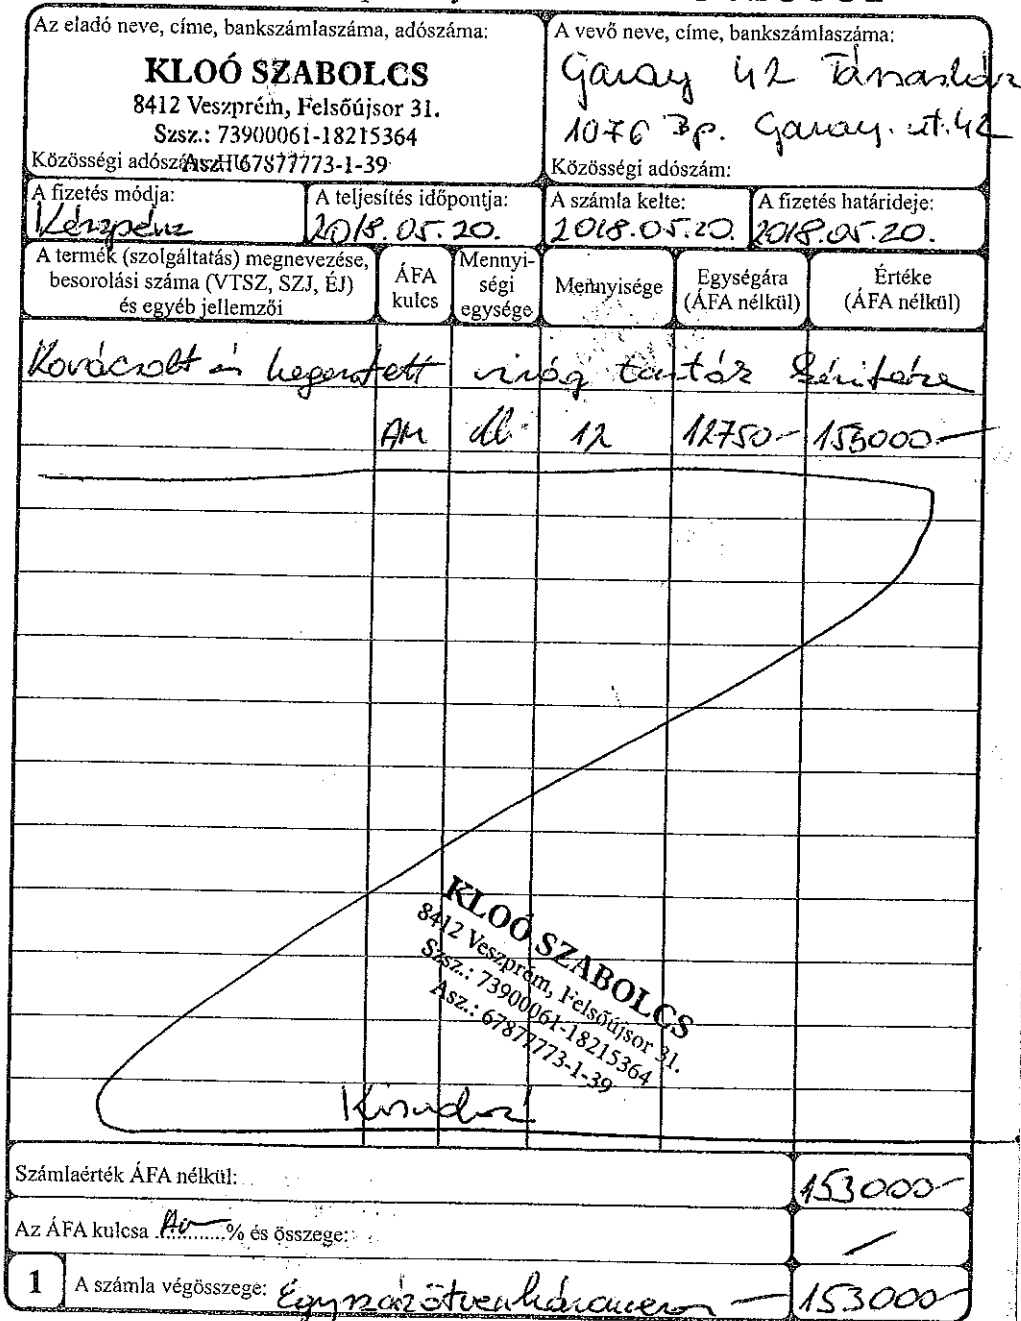 Az eladó neve, címe, bankszámlaszáma, adószáma:
KLOÓ SZABOLCS
8412 Veszprém, Felsőújsor 31.
Szsz.: 73900061-18215364
Közösségi adószám: Asz.: 67877773-1-39
A vevő neve, címe, bankszámlaszáma:
Garay 42 Társasház
1076 Bp. Garay. ut. 42
Közösségi adószám:
A fizetés módja:
Készpénz
A teljesítés időpontja:
2018.05.20.
A számla kelte:
2018.05.20.
A fizetés határideje:
2018.05.20.
A termék (szolgáltatás) megnevezése,
besorolási száma (VTSZ, SZJ, ÉJ)
és egyéb jellemzői
ÁFA
kulcs
Mennyi-
ségi
egysége
Mennyisége
Egységára
(ÁFA nélkül)
Értéke
(ÁFA nélkül)
Kovácsolt és hegesztett virág tartók
AM db. 12 12750- 153000-
KLOÓ SZABOLCS
8412 Veszprém, Felsőújsor 31.
Szsz.: 73900061-18215364
Asz.: 67877773-1-39
Kisadózó
Számlaérték ÁFA nélkül: 153000-
Az ÁFA kulcsa AM % és összege: /
1 A számla végösszege: Egyszázötvenháromezer — 153000-